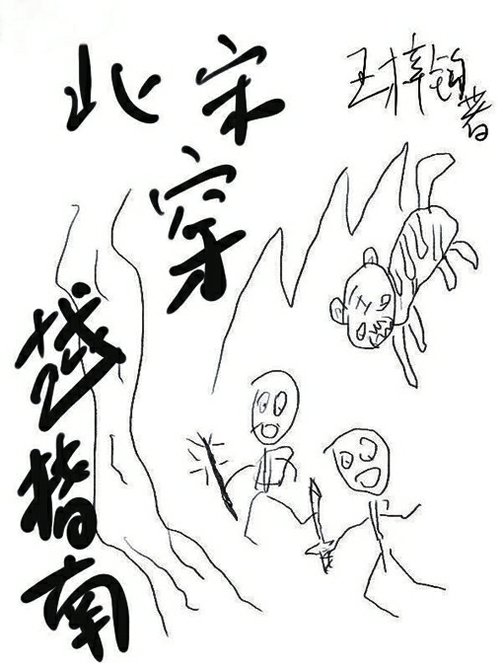 北宋
穿
越指南
王梓钧
著